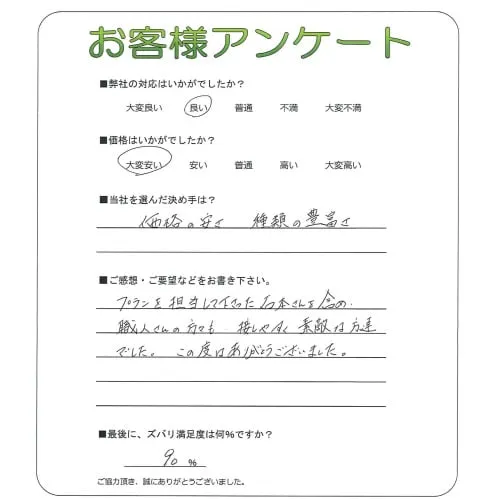 お客様アンケート
■弊社の対応はいかがでしたか？
大変良い 良い 普通 不満 大変不満
■価格はいかがでしたか？
大変安い 安い 普通 高い 大変高い
■当社を選んだ決め手は？
価格の安さ 種類の豊富さ
■ご感想・ご要望などをお書き下さい。
プランを担当して下さった石本さんを含め、
職人さんの方々も、接しやすく素敵な方達
でした。この度はありがとうございました。
■最後に、ズバリ満足度は何%ですか？
90 %
ご協力頂き、誠にありがとうございました。